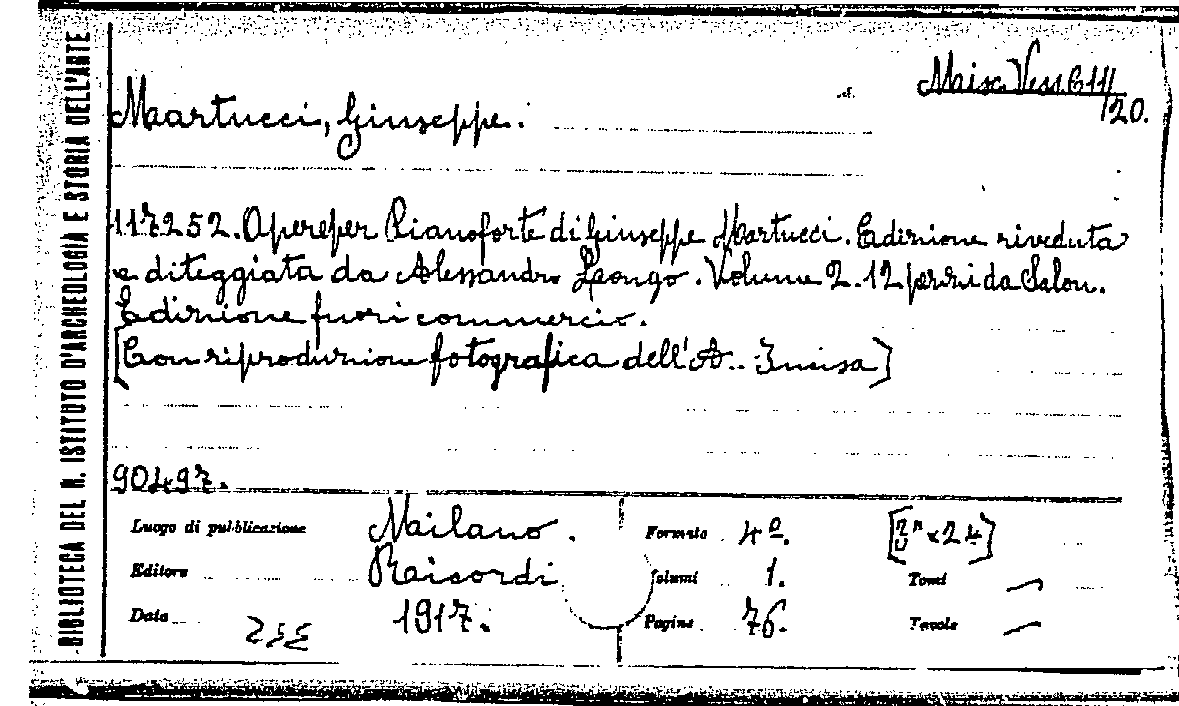 BIBLIOTECA DEL R. ISTITUTO D'ARCHEOLOGIA E STORIA DELL'ARTE
Misc. Vess. C 111/20.
Martucci, Giuseppe.
117252. Opere per Pianoforte di Giuseppe Martucci. Edizione riveduta
e diteggiata da Alessandro Longo. Volume 2. 12 pezzi da Salon.
Edizione fuori commercio.
[Con riproduzione fotografica dell'A.. Incisa]
90497.
Luogo di pubblicazione Milano. Formato 4º. × 24]
Editore Ricordi Volumi 1. Tomi —
Data 1917. Pagine 76. Tavole —